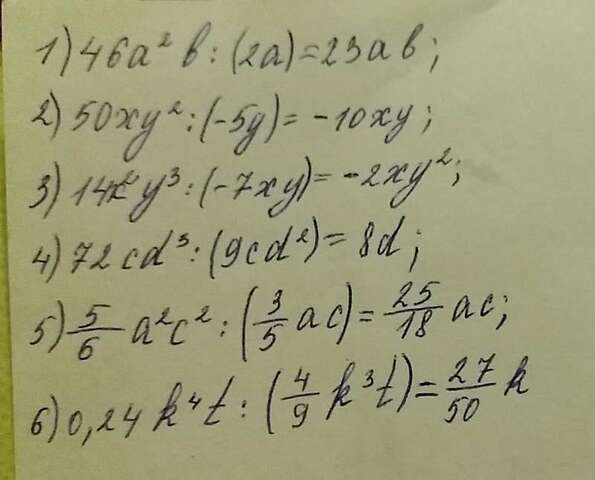 1) 46a² b : (2a) = 23a b;
2) 50xy² : (-5y) = -10xy;
3) 14x² y³ : (-7xy) = -2xy²;
4) 72cd³ : (9cd²) = 8d;
5) 5/6 a²c² : (3/5 ac) = 25/18 ac;
6) 0,24 k⁴t : (4/9 k³t) = 27/50 k